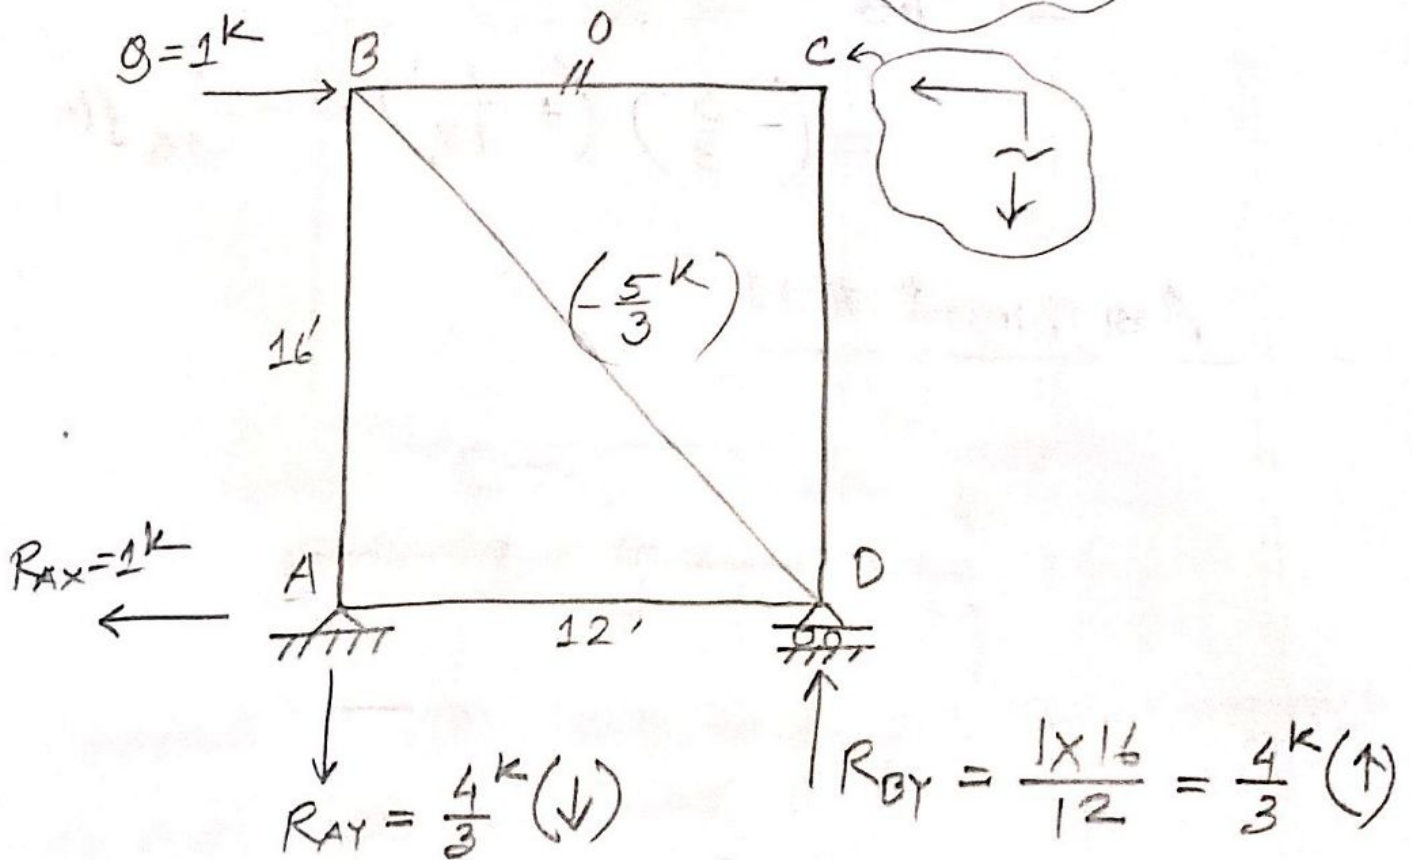 Q=1ᵏ
B
0
C
(-5/3 ᵏ)
16'
R_AX=1ᵏ
A
D
12'
R_AY = 4/3 ᵏ(↓)
R_BY = 1×16/12 = 4/3 ᵏ(↑)